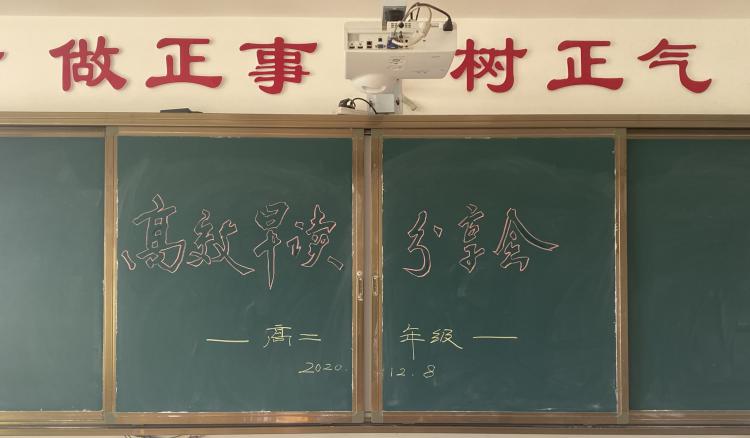 做正事 树正气
高效早读 分享会
— 高二 年级 —
2020. 12.8